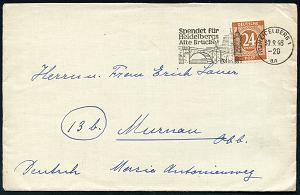 Spendet für
Heidelbergs
Alte Brücke!
DEUTSCHE
24
HEIDELBERG 1
-20
Herrn u. Frau Erich Lauer
13 b.) Murnau Obb.
Deutsch Maria Antonieweg